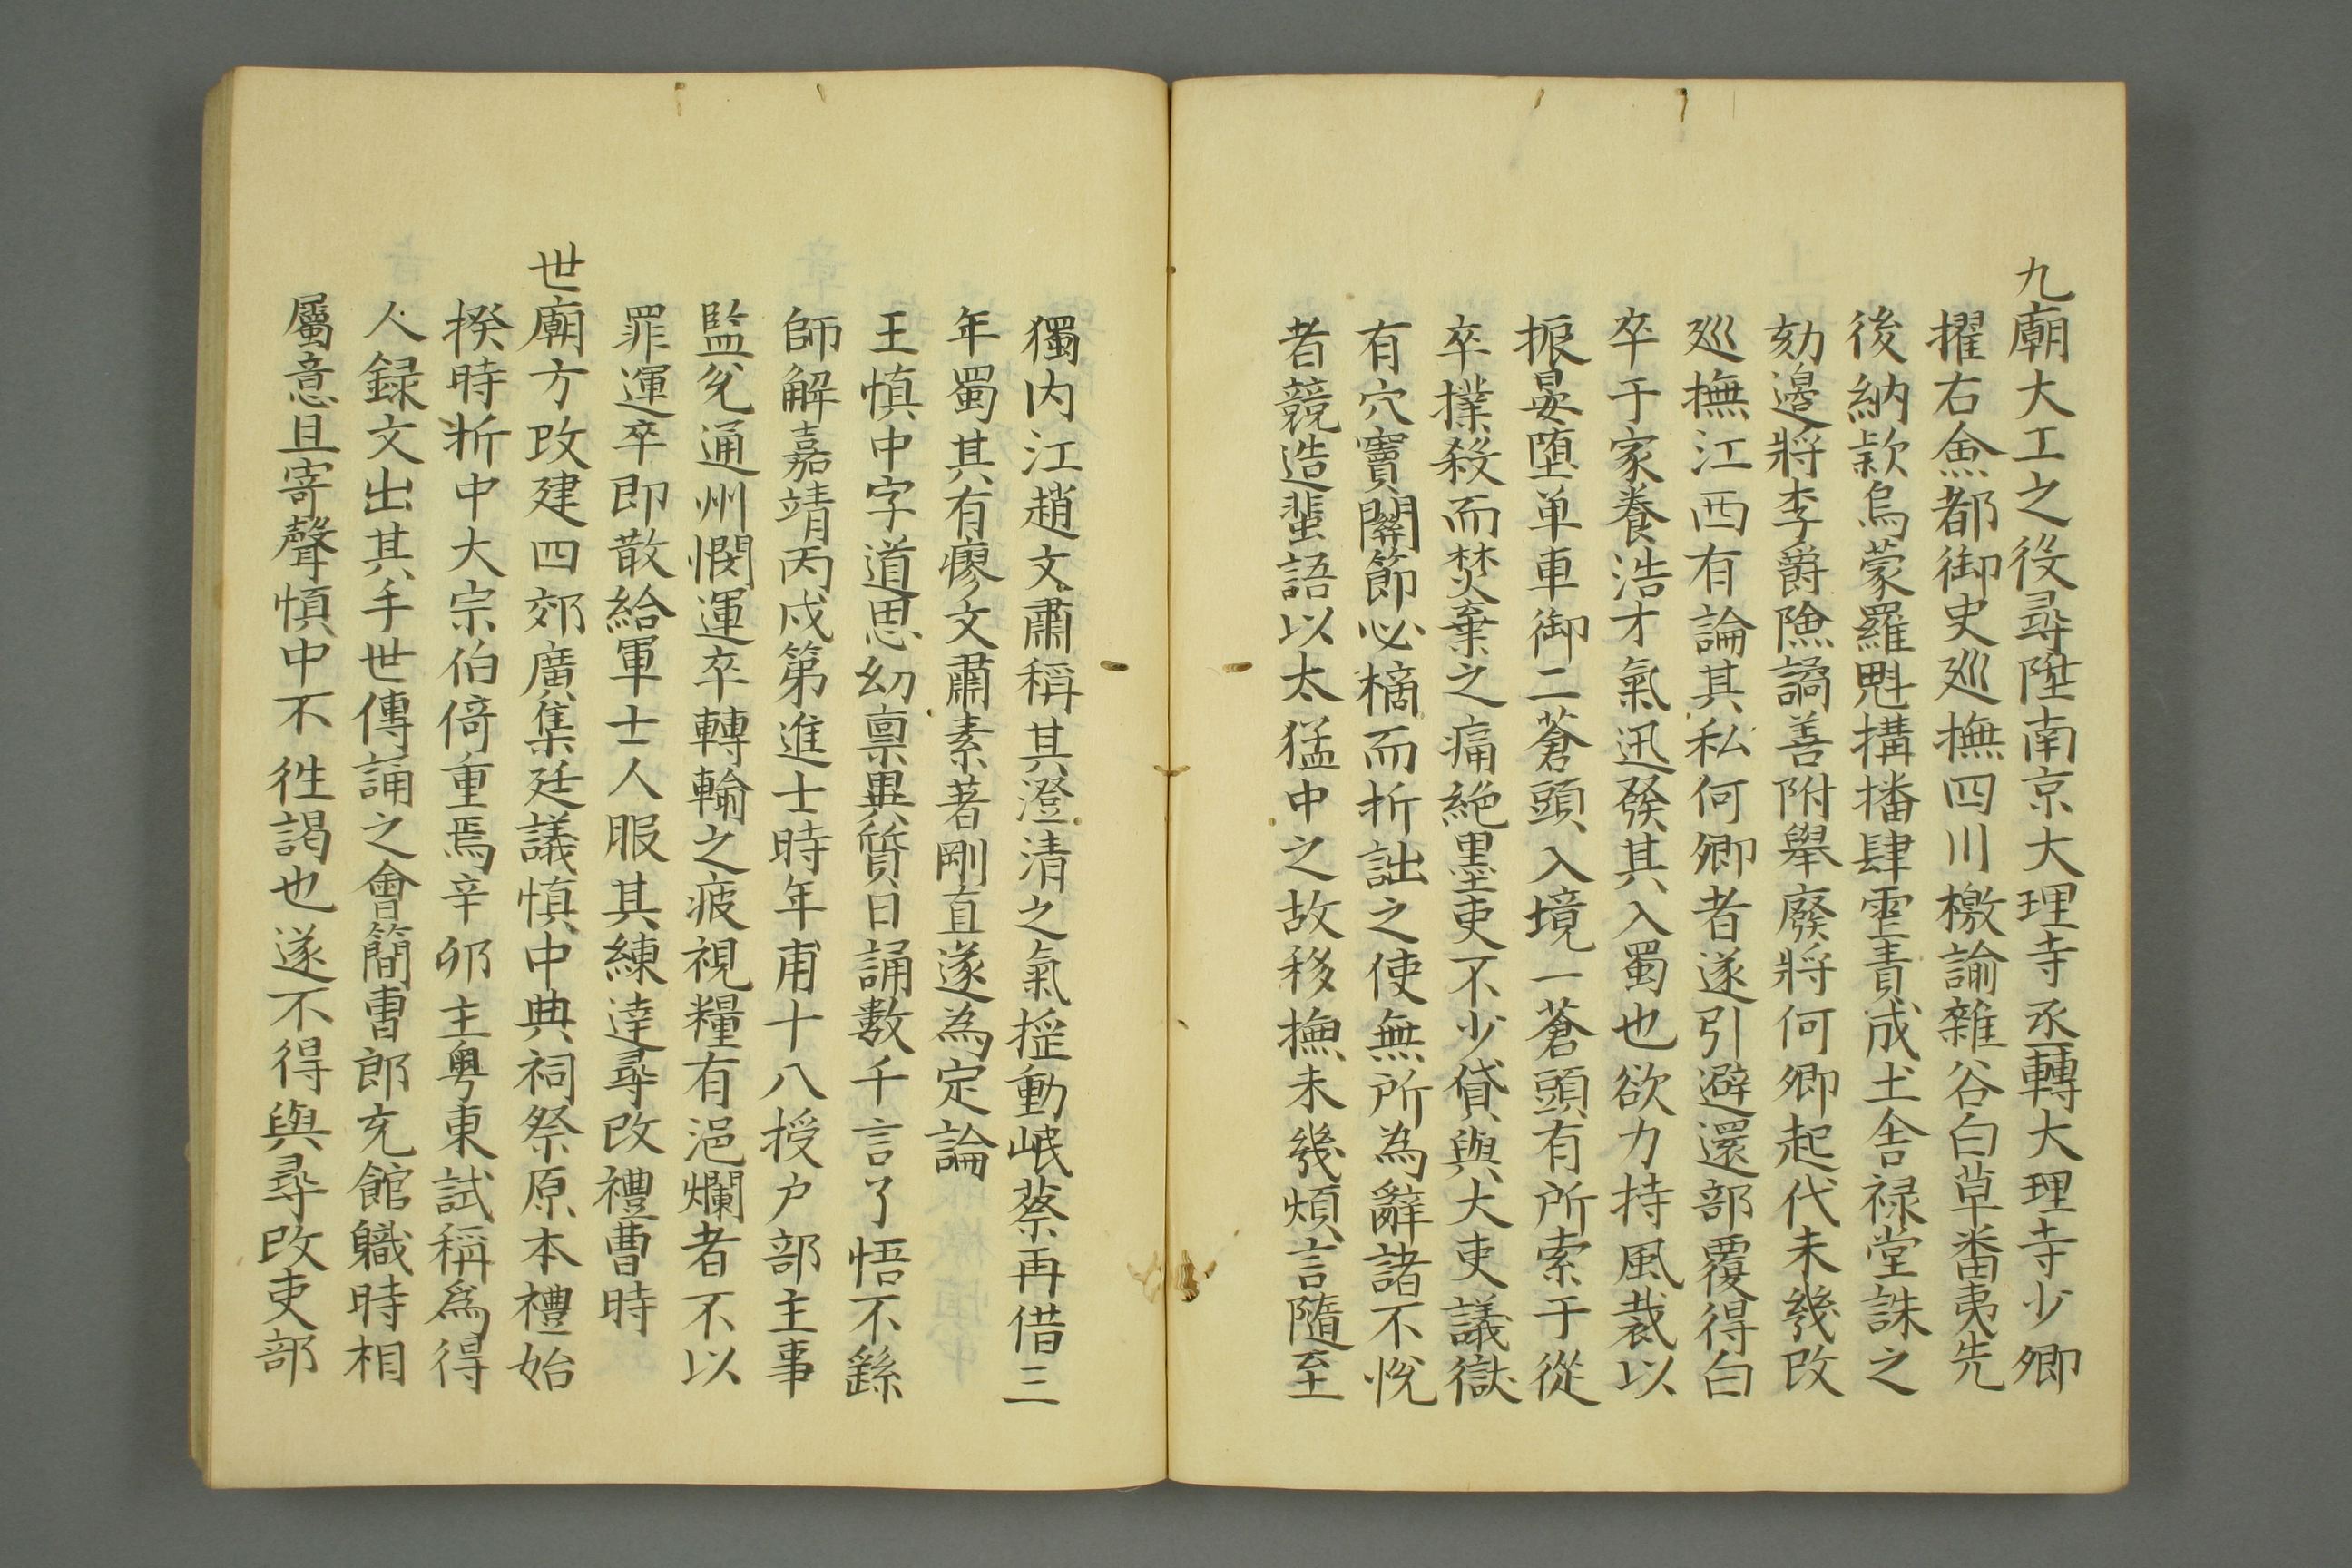 九廟大工之役尋陞南京大理寺丞轉大理寺少卿
擢右僉都御史巡撫四川檄諭雜谷白草畨夷先
後納款烏蒙羅鬼構播肆霍責成土舍禄堂誅之
劾邊將李爵隂譎善附舉廢將何卿起代未幾改
巡撫江西有論其私何卿者遂引避還部覆得白
卒于家養浩才氣迅發其入蜀也欲力持風裁以
振晏堕单車御二蒼頭入境一蒼頭有所索于從
卒撲殺而焚棄之痛絶墨吏不少貸與大吏議獄
有穴竇關節必摘而折詘之使無所為辭諸不悅
者競造蜚語以太猛中之故移撫未幾煩言隨至
獨内江趙文肅稱其澄清之氣摇動岷蔡再借三
年蜀其有瘳文肅素著剛直遂為定論
王慎中字道思幼禀異質日誦數千言了悟不繇
師解嘉靖丙戌第進士時年甫十八授户部主事
監兊通州憫運卒轉輸之疲視糧有浥爛者不以
罪運卒即散給軍士人服其練達尋改禮曹時
世廟方改建四郊廣集廷議慎中典祠祭原本禮始
揆時折中大宗伯倚重焉辛卯主粤東試稱爲得
人録文出其手世傳誦之會簡曹郎充館職時相
屬意且寄聲慎中不徃謁也遂不得與尋改吏部